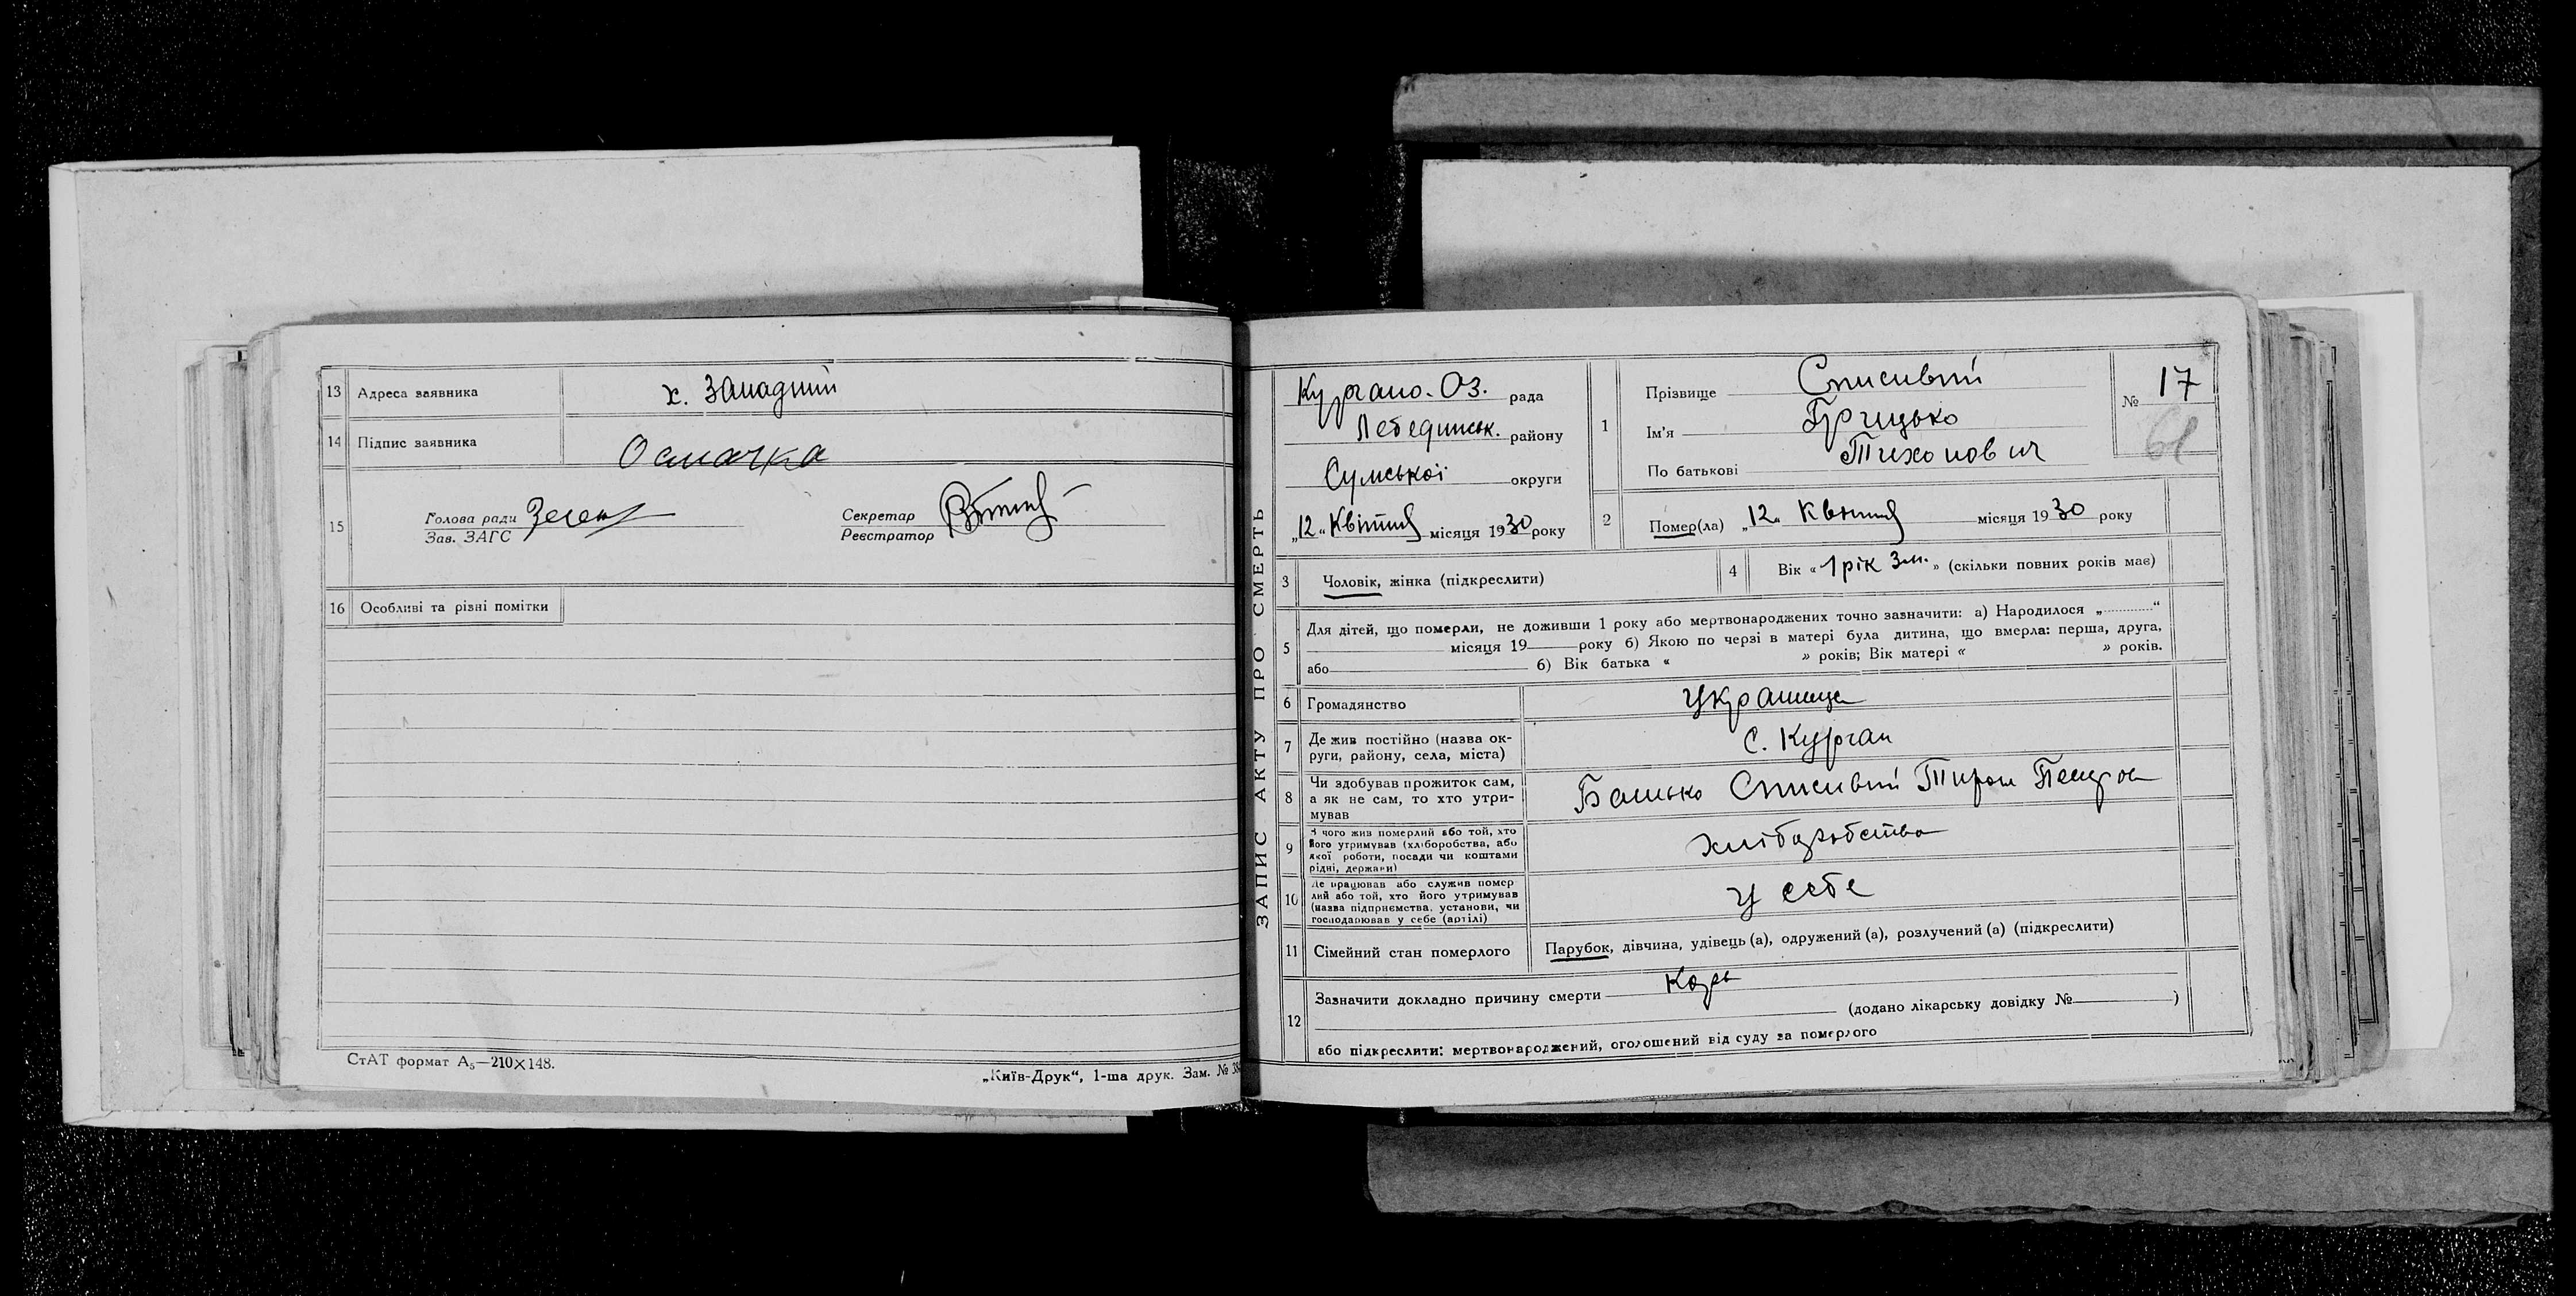 13 Адреса заявника х. Западний
14 Підпис заявника Осмачка
15 Голова ради
Зав. ЗАГС
Секретар
Реєстратор
16 Особливі та різні помітки
СтАТ формат А₅—210×148.
„Київ-Друк“, 1-ша друк. Зам. №
ЗАПИС АКТУ ПРО СМЕРТЬ
Кургано. Оз. рада
Лебединськ. району
Сумської округи
„12“ Квітня місяця 1930 року
1 Прізвище
Ім'я Грицько
По батькові Тихонович
№ 17
61
2 Помер(ла) „12“ Квітня місяця 1930 року
3 Чоловік, жінка (підкреслити)
4 Вік « 1 рік 3 м. » (скільки повних років має)
5 Для дітей, що померли, не доживши 1 року або мертвонароджених точно зазначити: а) Народилося „ “
місяця 19 року б) Якою по черзі в матері була дитина, що вмерла: перша, друга,
або б) Вік батька « » років; Вік матері « » років.
6 Громадянство
7 Де жив постійно (назва ок-
руги, району, села, міста)
с. Курган
8 Чи здобував прожиток сам,
а як не сам, то хто утри-
мував
Батько
9 З чого жив померлий або той, хто
його утримував (хліборобства, або
якої роботи, посади чи коштами
рідні, держави)
хліборобства
10 Де працював або служив помер
лий або той, хто його утримував
(назва підприємства, установи, чи
господарював у себе (артілі)
у себе
11 Сімейний стан померлого
Парубок, дівчина, удівець (а), одружений (а), розлучений (а) (підкреслити)
12 Зазначити докладно причину смерти Кор
(додано лікарську довідку № )
або підкреслити: мертвонароджений, оголошений від суду за померлого